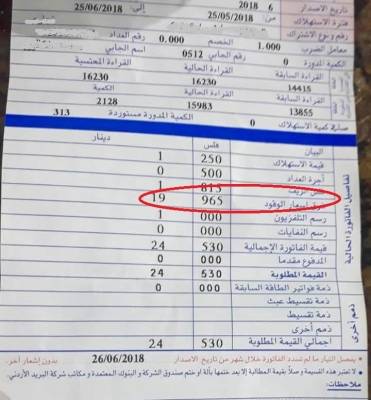 تاريخ الاصدار 6 2018
فترة الاستهلاك من: 25/05/2018 إلى: 25/06/2018
رقم ونوع الاشتراك
معامل الضرب 1.000 الخصم 0.000 رقم العداد
الكمية المدورة 0 اسم الجابي 0512 رقم الجابي
القراءة السابقة القراءة الحالية القراءة المحتسبة
14415 16230 16230
القراءة السابقة القراءة الكمية
13855 15983 2128
صافي كمية الاستهلاك 0 الكمية المدورة مستوردة 313
تفاصيل الفاتورة الحالية
البيان فلس دينار
قيمة الاستهلاك 250 1
أجرة العداد 500 0
815 1
فرق اسعار الوقود 965 19
رسم التلفزيون 000 1
رسم النفايات 000 0
قيمة الفاتورة الإجمالية 530 24
المدفوع مقدما 0
القيمة المطلوبة 530 24
ذمة فواتير الطاقة السابقة 000 0
ذمم أخرى
ذمة تقسيط عبث
ذمة تقسيط
ذمة أخرى
إجمالي القيمة المطلوبة 530 24
• يفصل التيار ما لم تسدد الفاتورة خلال شهر من تاريخ الاصدار 26/06/2018 بدون إشعار آخر.
• لا تعتبر هذه القسيمة وصلاً بقيمة المطالبة إلا بعد ختمها بآلة او ختم صندوق الشركة و البنوك المعتمدة و مكاتب شركة البريد الأردني.
ملاحظات: